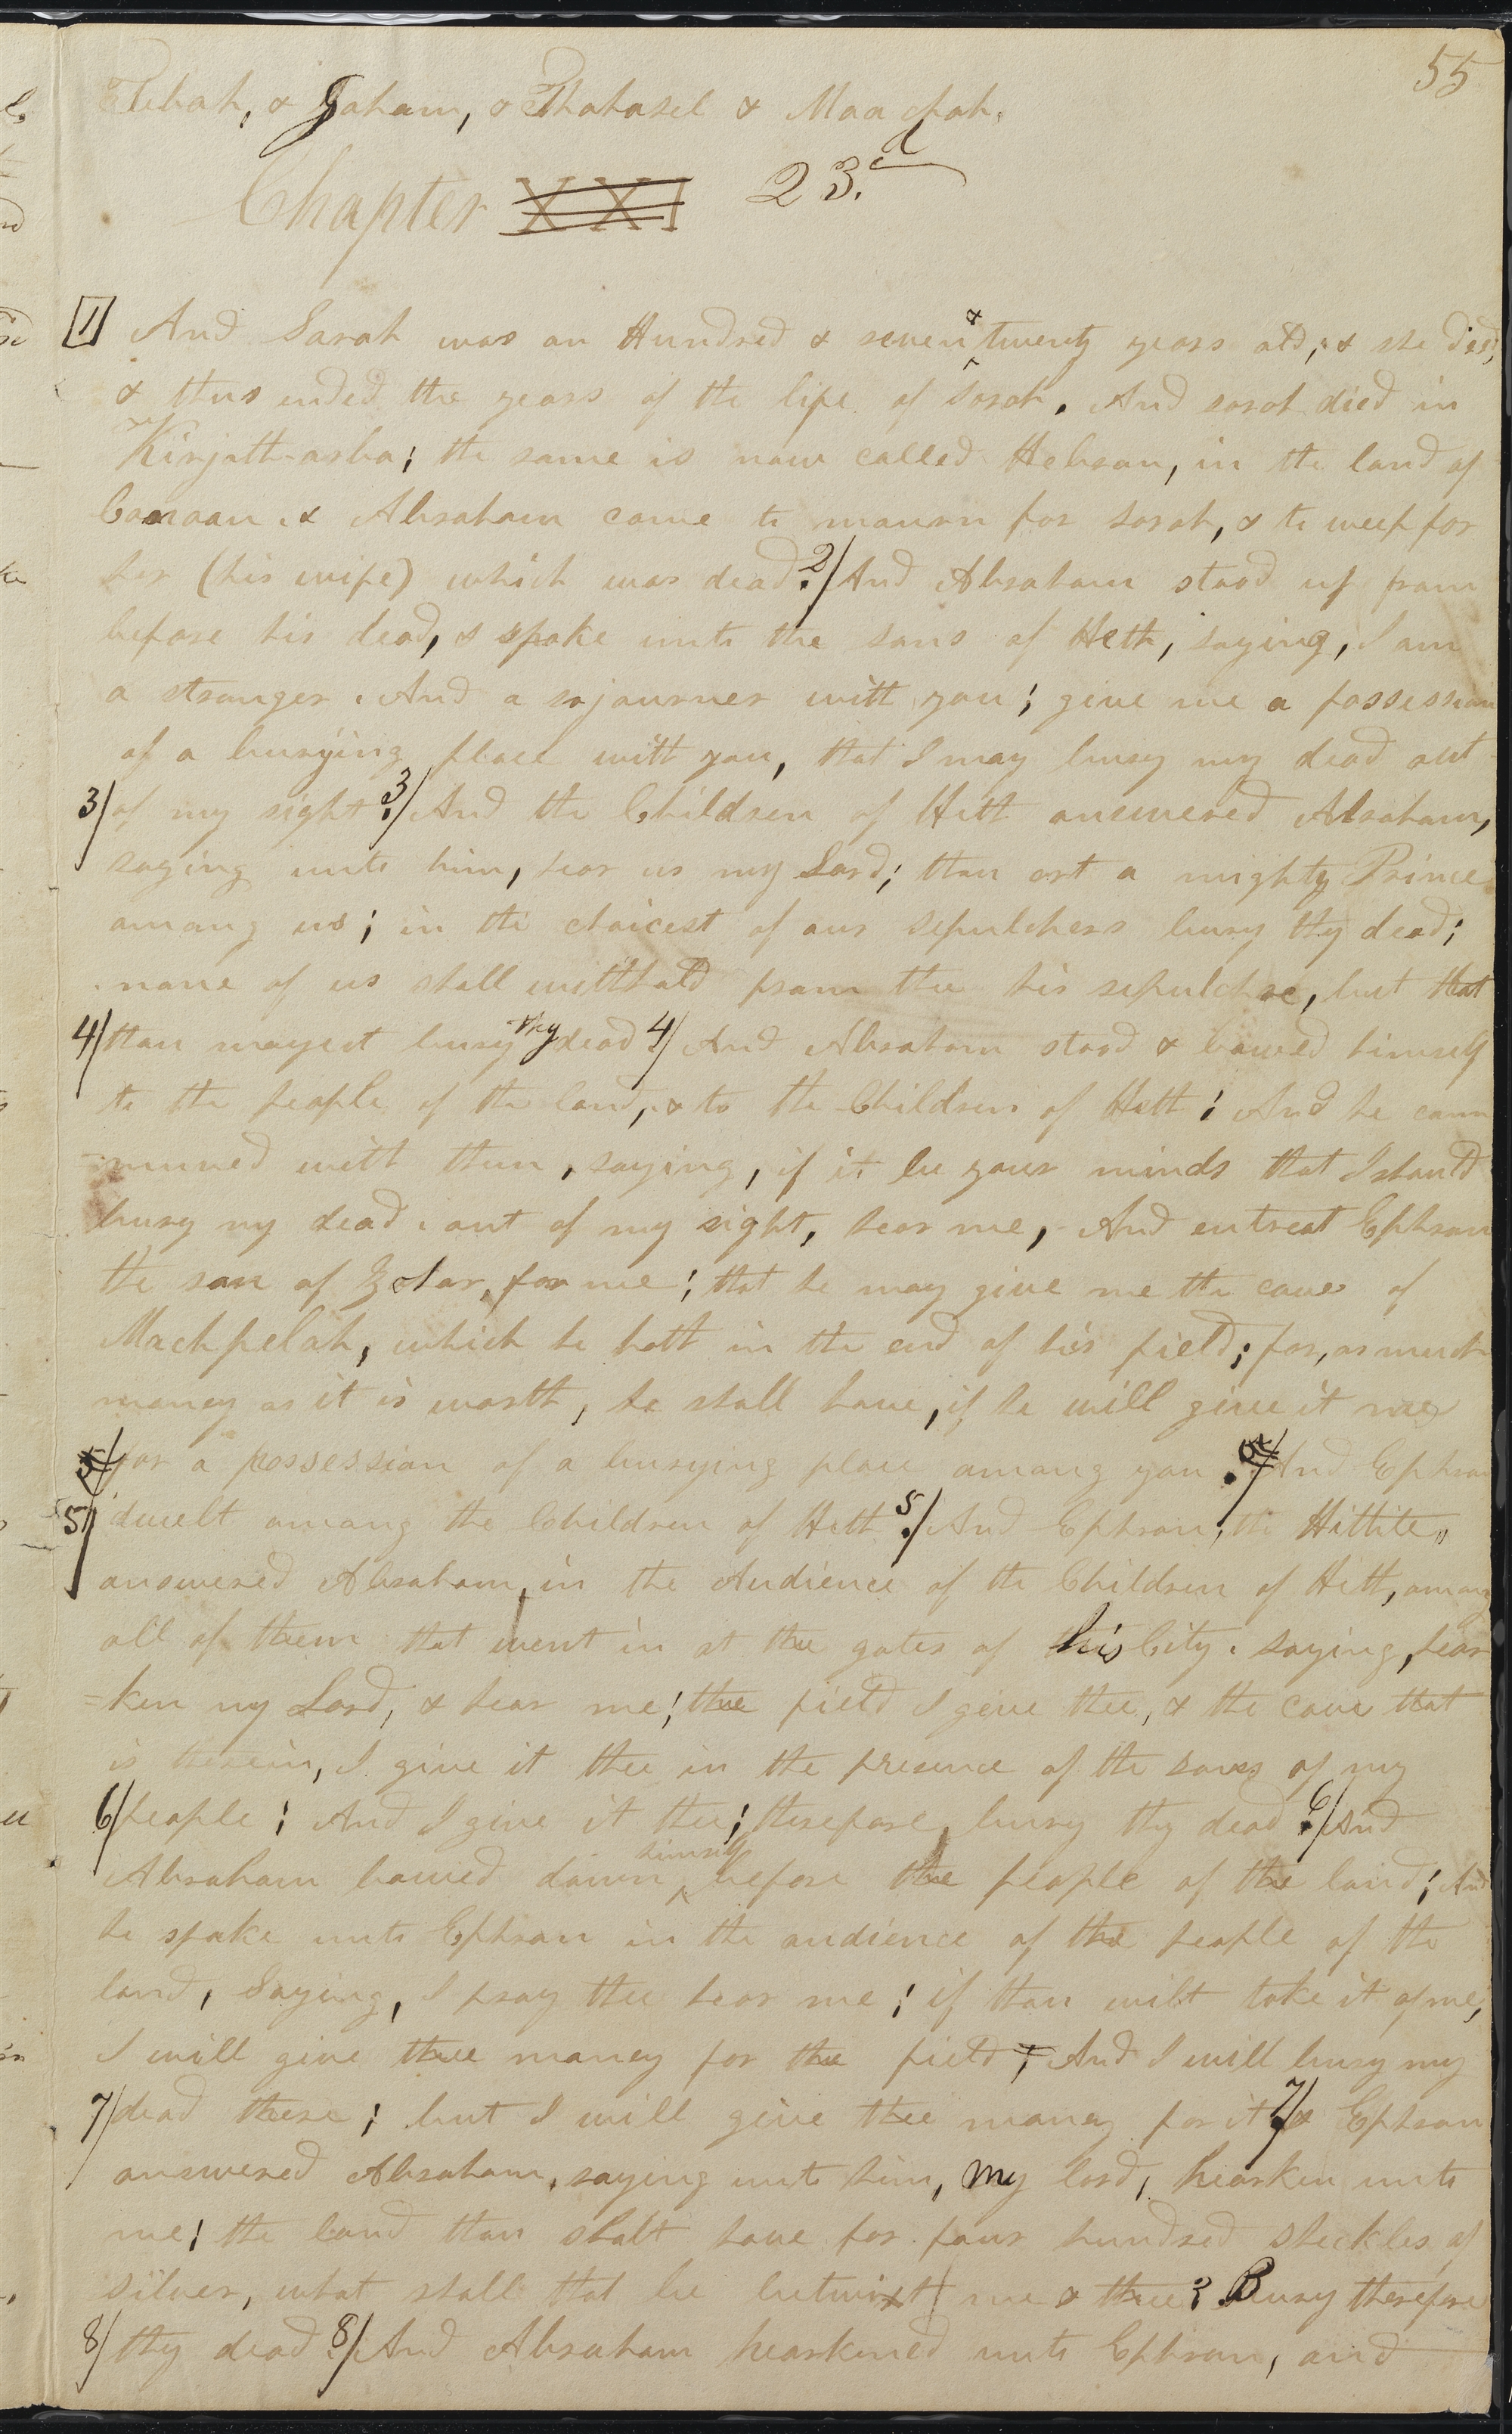 55
Tebah, & Gaham, & Thahasel & Maachah.
Chapter XXI 23.d
1 And Sarah was an Hundred & seven & twenty years old, & she died,
& thus ended the years of the life of Sarah. And sarah died in
Kirjath-arba; the same is now called Hebron, in the land of
Canaan. & Abraham came to mourn for Sarah, & to weep for
her (his wife) which was dead. 2/ And Abraham stood up from
before his dead, & spoke unto the sons of Heth, saying, I am
a stranger. And a sojourner with you; give me a possession
of a burying place with you, that I may bury my dead out
3/ of my sight. 3/ And the Children of Heth answered Abraham,
saying unto him, hear us my Lord; thou art a mighty Prince
among us; in the choicest of our sepulchers bury thy dead;
none of us shall withhold from thee his sepulchre, but that
4/ thou mayest bury thy dead. 4/ And Abraham stood & bowed himself
to the people of the land, & to the Children of Heth; And he com
=muned with them, saying, if it be your minds that I should
bury my dead. out of my sight, hear me, And entreat Ephron
the son of Zohar, for me; that he may give me the cave of
Machpelah, which he hath in the end of his field; for, as much
money as it is worth, he shall have, if he will give it me
5/ for a possession of a burying place among you. 5/ And Ephron
5/ dwelt among the Children of Heth. 5/ And Ephron, the Hittite,
answered Abraham, in the Audience of the Children of Heth, among
all of them that went in at the gates of his City. saying, hear
=ken my Lord, & hear me; the field I give thee, & the cave that
is therein, I give it thee in the presence of the sons of my
6/ people; And I give it thee; therefore, bury thy dead. 6/ And
Abraham bowed down himself before the people of the land; And
he spake unto Ephron in the audience of the people of the
land, Saying, I pray thee hear me; if thou wilt take it of me,
I will give thee money for the field; And I will bury my
7/ dead there; but I will give thee money for it. 7/ & Ephron
answered Abraham, saying unto him, My lord, hearken unto
me; the land thou shalt have for four hundred sheckles of
silver, what shall that be betwixt me & thee? Bury therefore
8/ thy dead. 8/ And Abraham hearkened unto Ephron, and